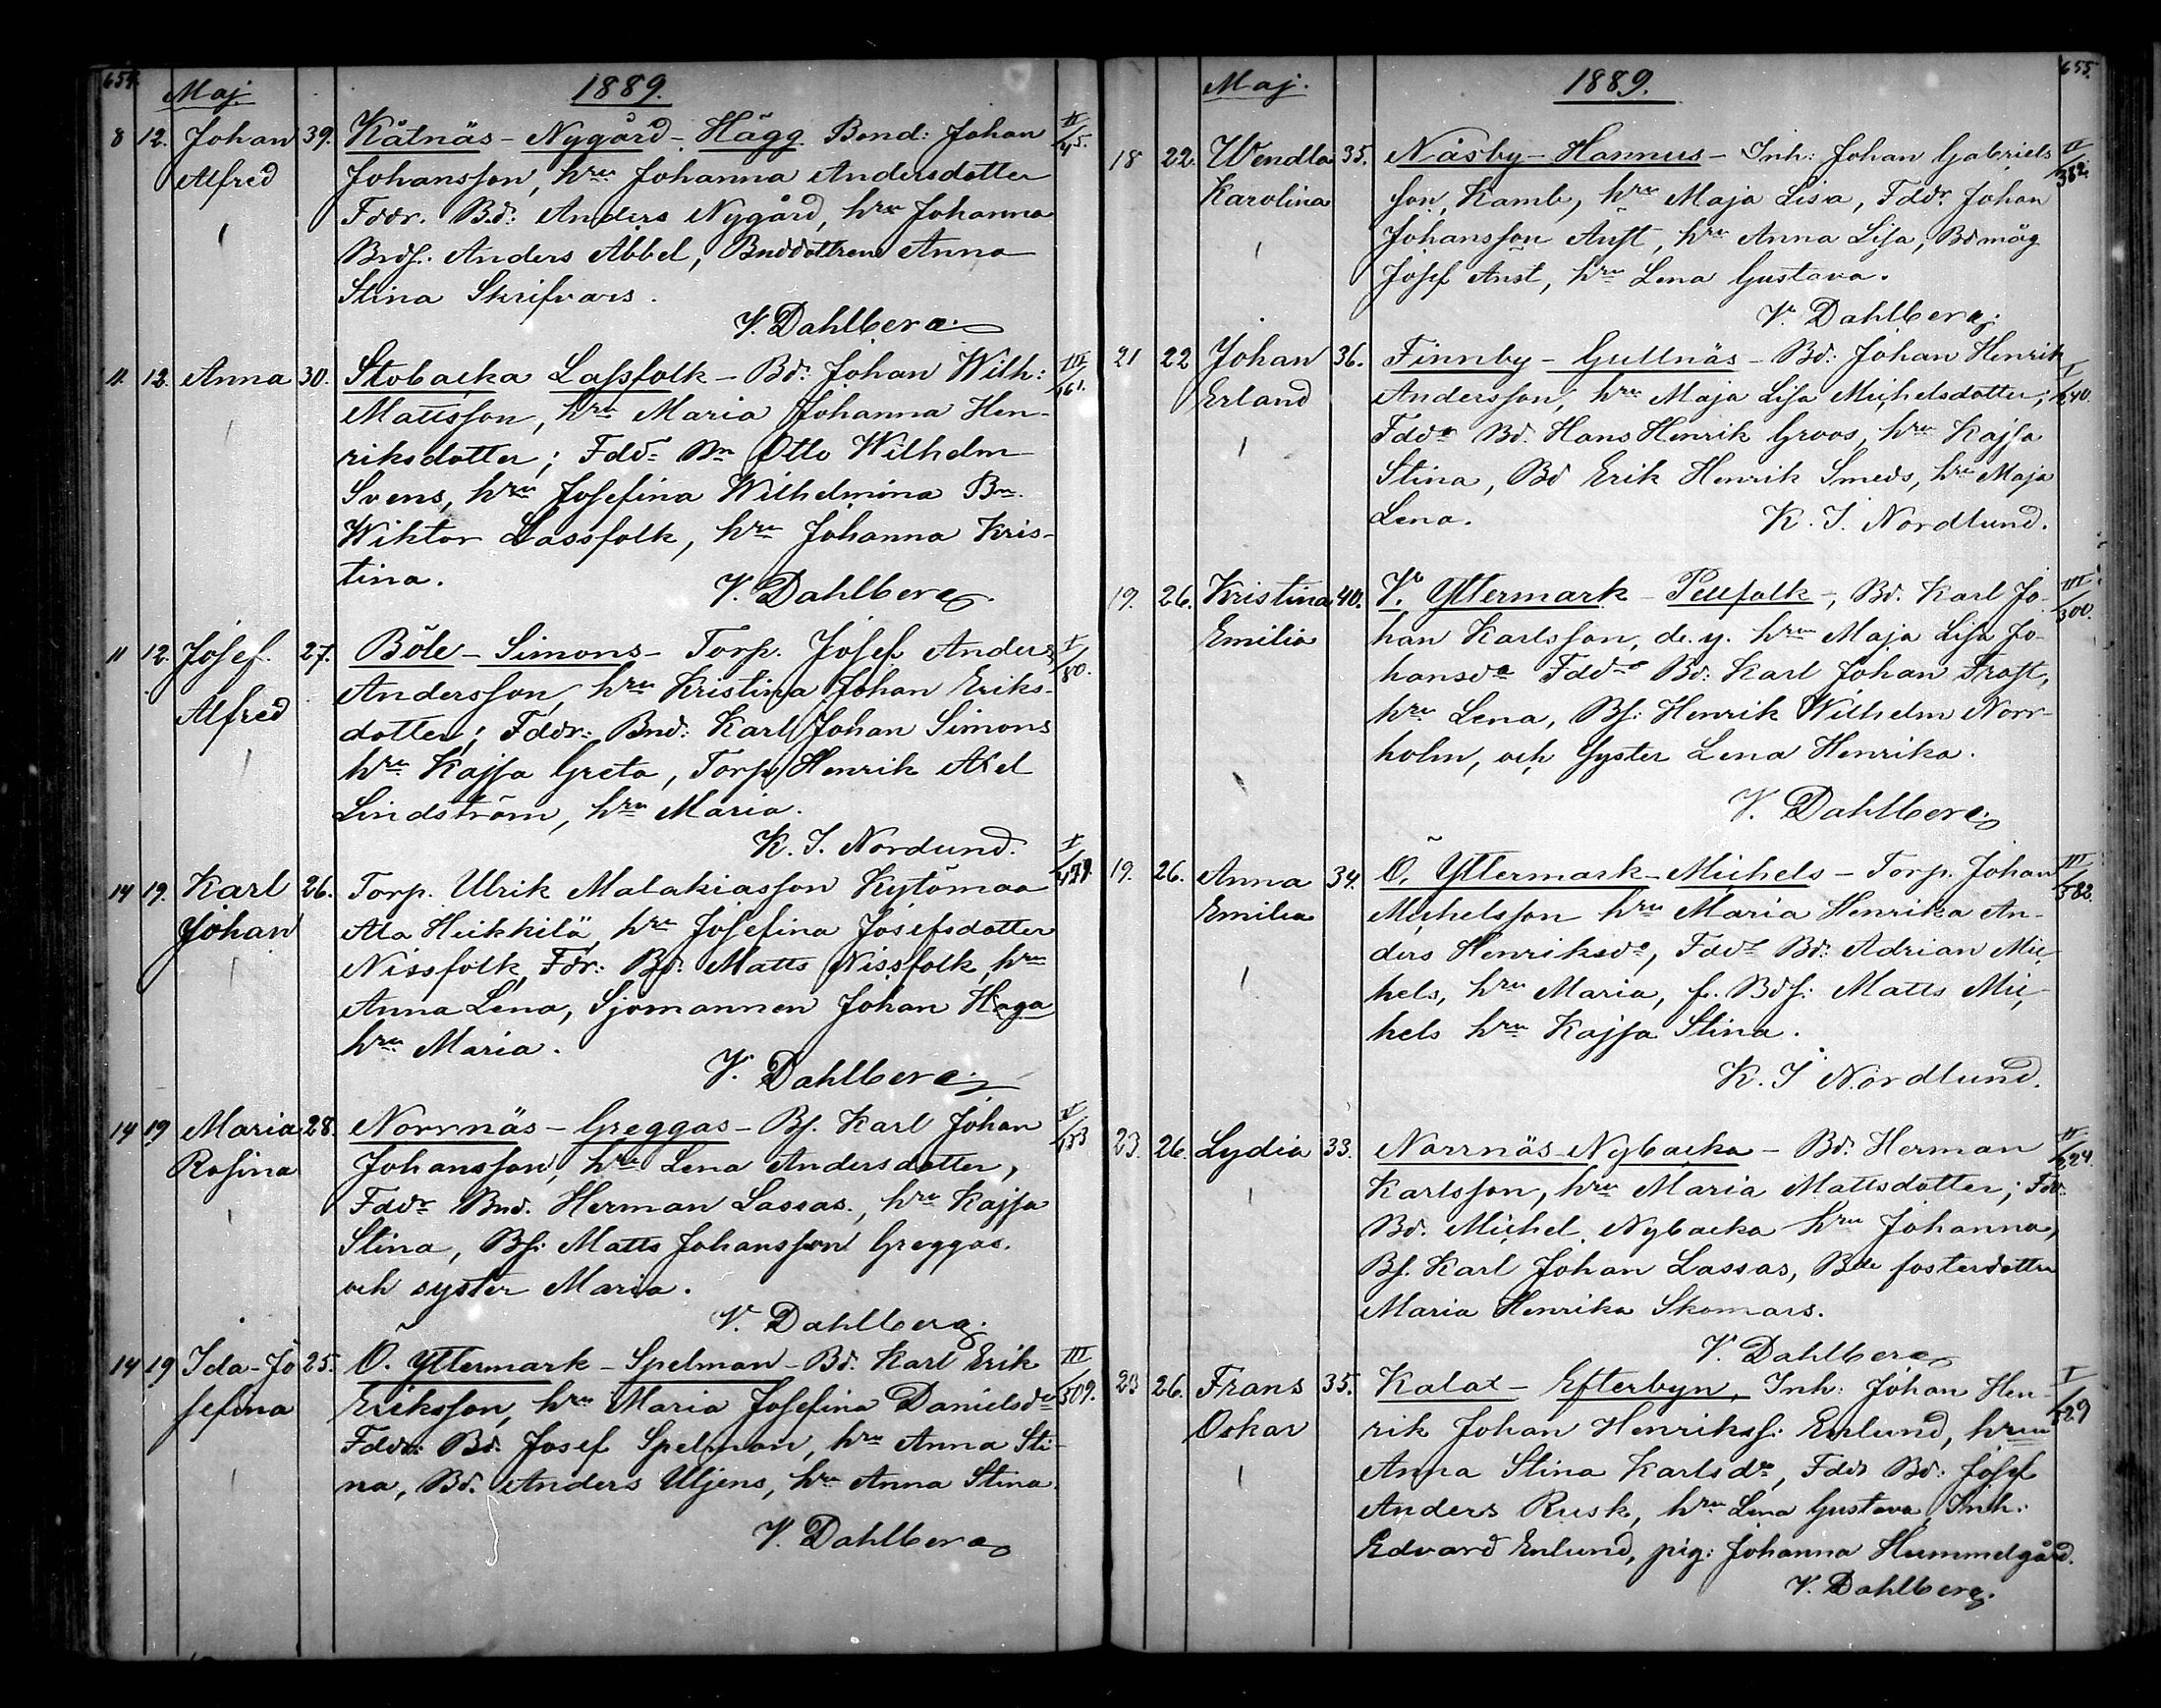 654.
Maj.
1889.
8 12. Johan 39. Kåtnäs - Nygård - Hägg. Bond: Johan II/45.
Alfred Johansson, hru Johanna Andersdotter
Fddr. Bd: Anders Nygård, hru Johanna
Brds. Anders Abbel, Bnddottren Anna
Stina Skrifvars.
V. Dahlberg.
11. 12. Anna 30. Stobacka Lassfolk - Bd: Johan Wilh: III/161.
Mattsson, hru Maria Johanna Hen-
riksdotter; Fddr Bn Otto Wilhelm
Svens, hru Josefina Wilhelmina Bn.
Wiktor Lassfolk, hru Johanna Kris-
tina.
V. Dahlberg.
11 12. Josef. 27. Böle - Simons - Torp. Josef Anders I/80.
Alfred Andersson, hru Kristina Johan Eriks-
dotter; Fddr: Bnd: Karl Johan Simons
hru Kajsa Greta, Torp. Henrik Axel
Lindström, hru Maria.
K. I. Nordund.
14 19. Karl 26. Torp. Ulrik Malakiasson Kytömaa
Johan Ala Heikkilä, hru Josefina Josefsdotter
Nissfolk, Fdr: Bd: Matts Nissfolk, hru
Anna Lena, Sjömannen Johan Haga
hru Maria.
V. Dahlberg.
14 19 Maria 28. Norrnäs - Greggas - Bs. Karl Johan
Rosina Johansson, hru Lena Andersdotter,
Fddr Bnd. Herman Lassas., hru Kajsa
Stina, Bs: Matts Johansson Greggas.
och syster Maria.
V. Dahlberg.
14 19 Ida-Jo 25. Ö. Yttermark - Spelman - Bd. Karl Erik III/309.
sefina Eriksson, hru Maria Josefina Danielsdr
Fddr: Bd. Josef Spelman, hru Anna Sti-
na, Bd. Anders Uljens, hru Anna Stina.
V. Dahlberg
655.
Maj.
1889.
18 22. Wendla 35. Näsby - Hannus - Inh: Johan Gabriels II/382.
Karolina son, Kamb, hru Maja Lisa, Fddr. Johan
Johansson Äust, hru Anna Lisa, Bdmåg
Josef Äust, hru Lena Gustava.
V. Dahlberg.
21 22 Johan 36. Finnby - Gullnäs - Bd: Johan Henrik
Erland Andersson, hru Maja Lisa Michelsdotter; I/240.
Fddr Bd. Hans Henrik Groos, hru Kajsa
Stina, Bd Erik Henrik Smeds, hru Maja
Lena.
K. I. Nordlund.
19. 26. Kristina 40. Y. Yttermark - Pellfolk -, Bd. Karl Jo- III/300.
Emilia han Karlsson, d. y. hru Maja Lisa Jo-
hansdr Fddr Bd: Karl Johan Frost,
hru Lena, Bs: Henrik Wilhelm Norr-
holm, och Syster Lena Henrika.
V. Dahlberg
19. 26. Anna 34. Ö. Yttermark - Michels - Torp. Johan III/382.
Emilia Michelsson hru Maria Henrika An-
ders Henriksdr, Fddr Bd: Adrian Mic-
hels, hru Maria, f. Bds: Matts Mic-
hels hru Kajsa Stina.
K. I. Nordlund.
23. 26. Lydia 33. Norrnäs Nybacka - Bd. Herman II/224.
Karlsson, hru Maria Mattsdotter; Fdr.
Bd. Michel Nybacka hru Johanna,
Bs. Karl Johan Lassas, Bde fosterdotter
Maria Henrika Skomars.
V. Dahlberg
23 26. Frans 35. Kalax - Efterbyn, Inh: Johan Hen-
Oskar rik Johan Henrikss: Enlund, hru
Anna Stina Karlsdr, Fddr Bd: Josef
Anders Rusk, hru Lena Gustava, Inh:
Edvard Enlund, pig: Johanna Hummelgård.
V. Dahlberg.